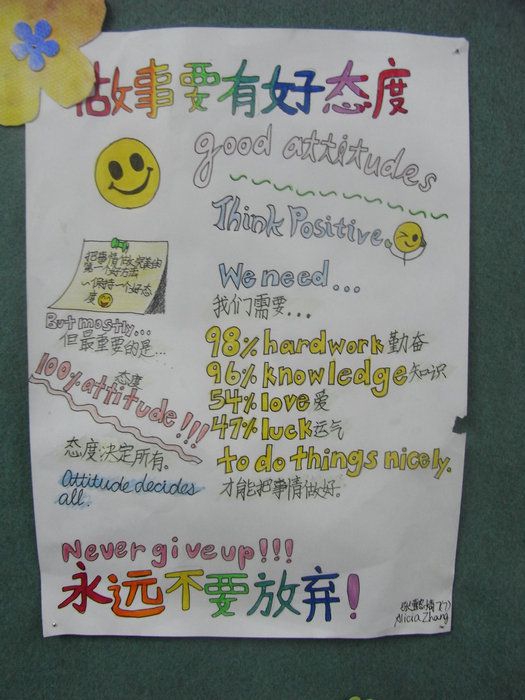 做事要有好态度
good attitudes
Think Positive.
把事情做完美的
第一个好方法
~保持一个好态
度
We need...
我们需要...
But mostly...
但最重要的是...
98% hardwork 勤奋
96% knowledge 知识
54% love 爱
47% luck 运气
to do things nicely.
才能把事情做好。
态度
100% attitude!!!
态度决定所有。
Attitude decides
all.
Never give up!!!
永远不要放弃!
Alicia Zhang